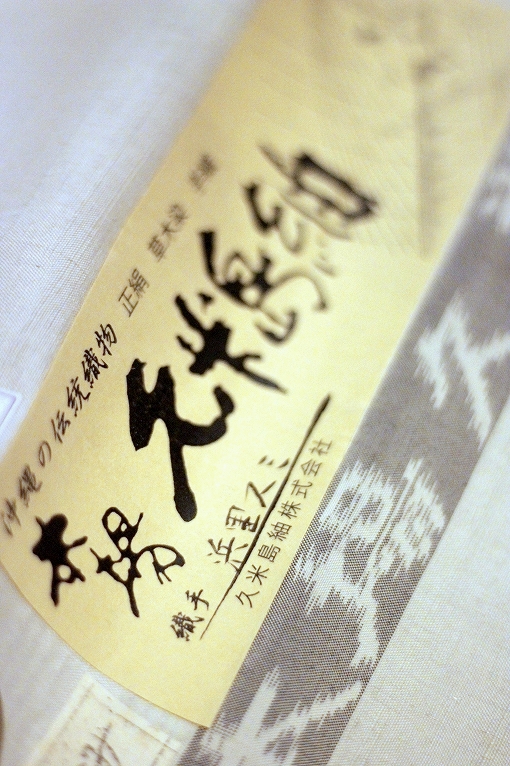 沖縄の伝統織物 正絹 草木染
本場 久米島紬
織手 浜里スミ
久米島紬株式会社